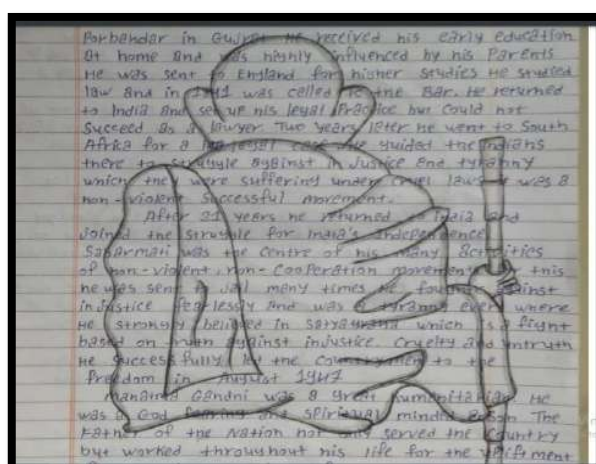 Porbandar in Gujrat He received his early education
at home and was highly influenced by his Parents
He was sent to England for higher studies He studied
law and in was called to the Bar. He returned
to India and set up his legal Practice but could not
Succeed as a lawyer. Two years later he went to South
Afrika for a legal case He guided the Indians
there to struggle against in Justice and tyranny
which they were suffering under cruel laws was a
non-violent successful movement.
After 21 years he returned to India and
Joined the struggle for India's Independence
Sabarmati was the centre of his many activities
of non-violent, non-cooperation movement this
he was sent to Jail many times He fought against
injustice fearlessly and was a tyranny every where
He strongly believed in Satyagraha which is a fight
based on truth against injustice cruelty and untruth
He successfully led the countrymen to the
freedom in August 1947
Mahatma Gandhi was a great humanitarian He
was a God fearing and spiritual minded The
Father of the Nation not only served the country
but worked throughout his life for the upliftment